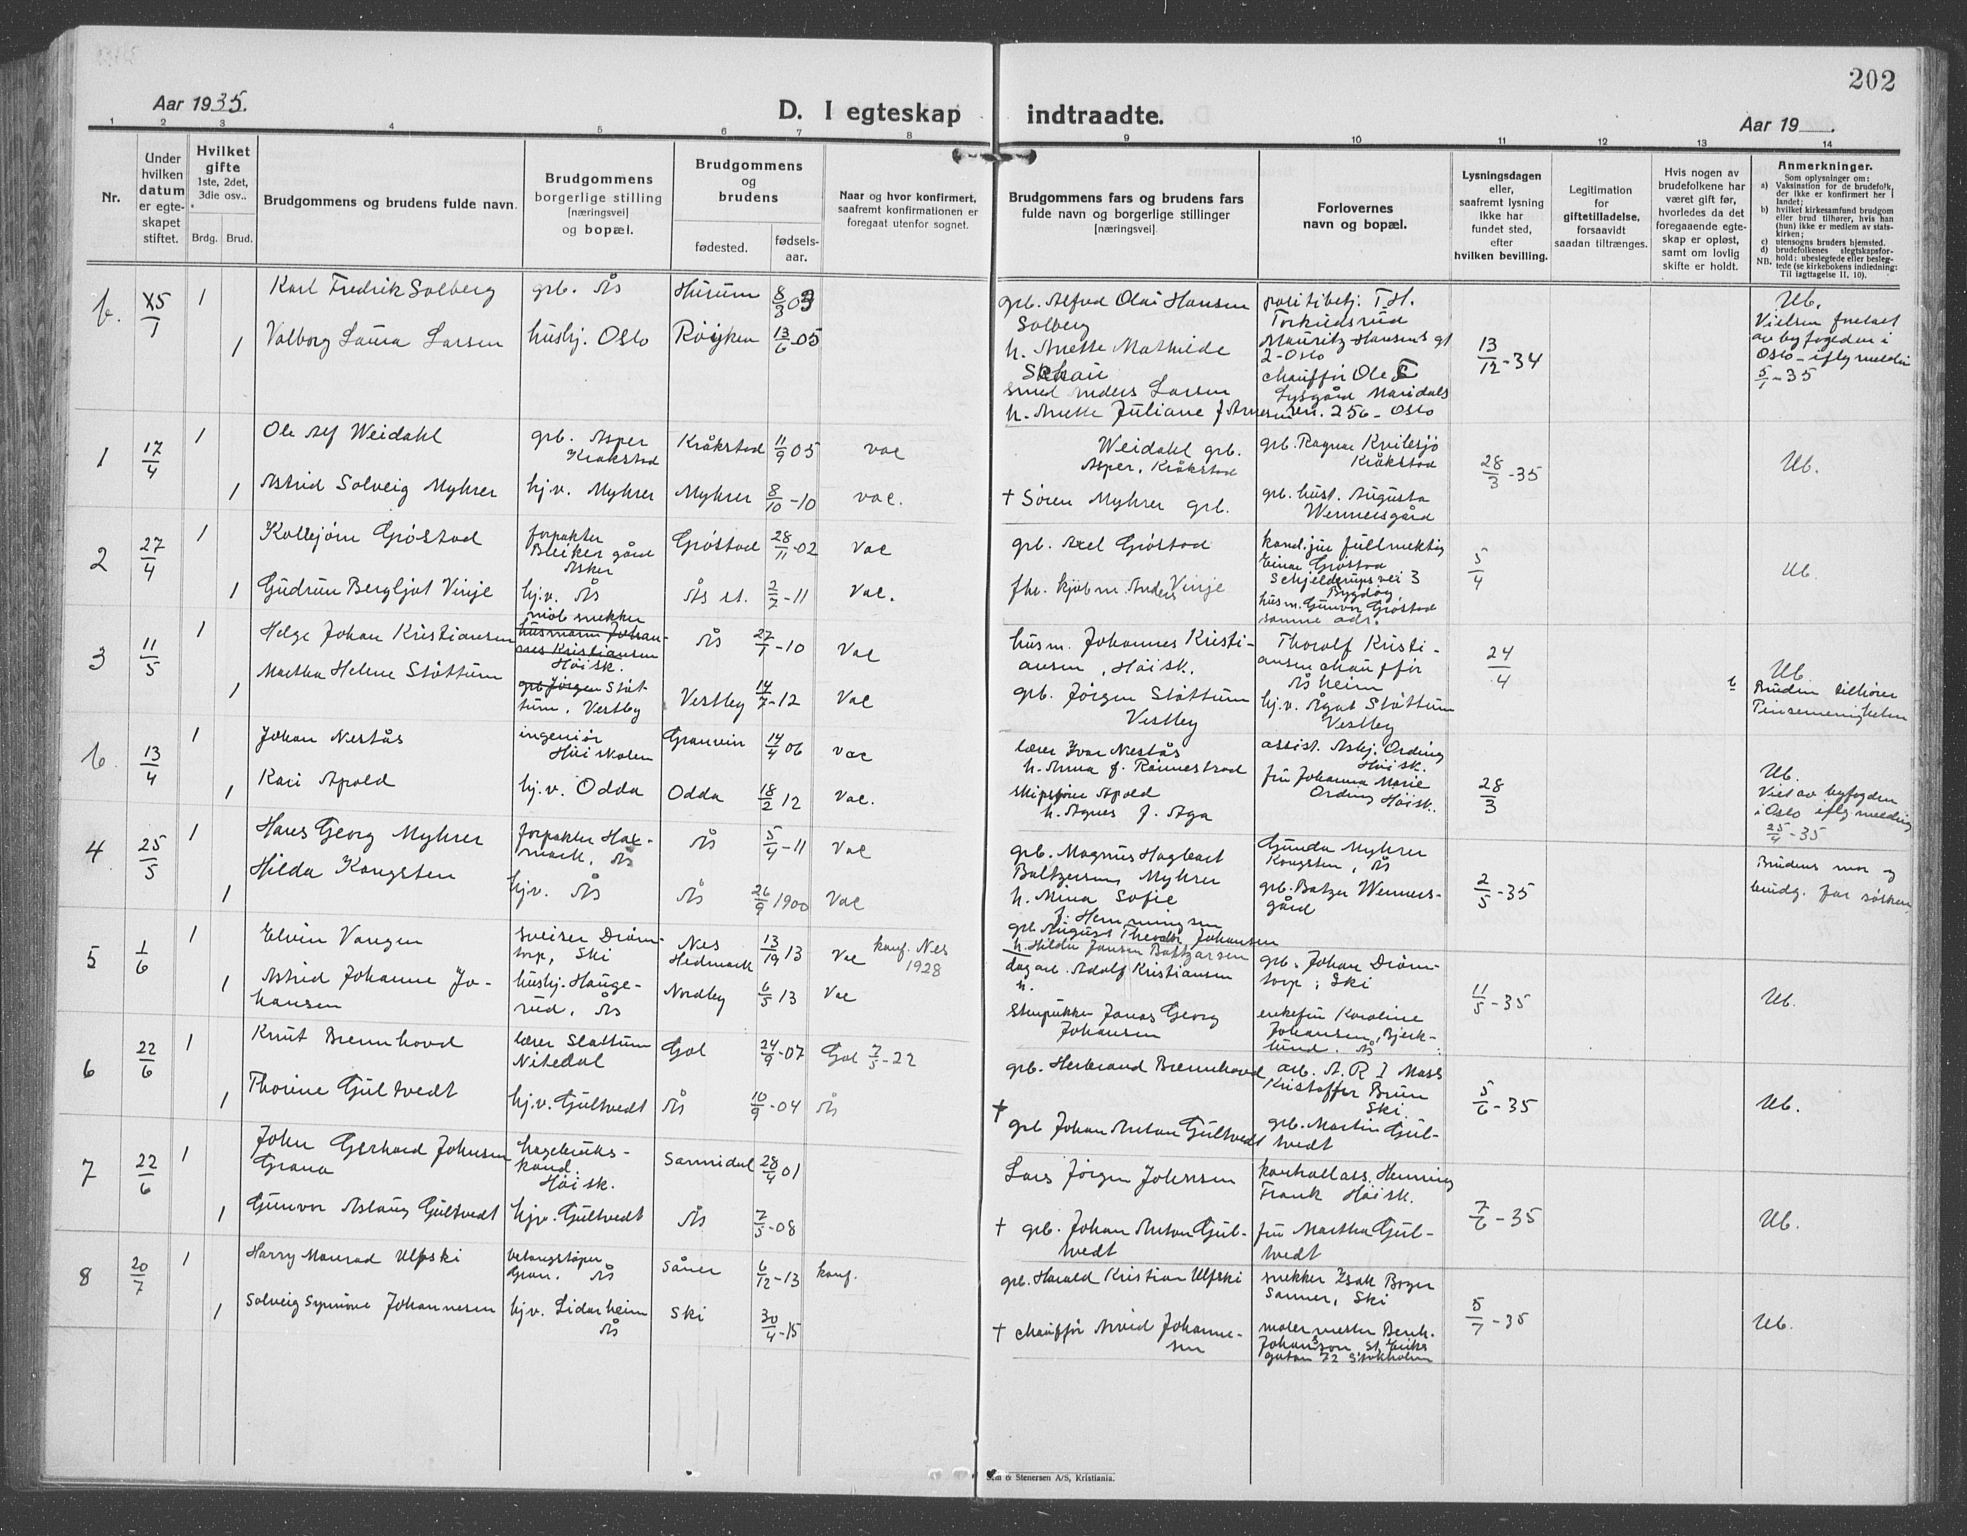 202
Aar 1935.
D. I egteskap indtraadte.
Aar 19 .
1 2 3 4 5 6 7 8 9 10 11 12 13 14
Nr.
Under hvilken datum er egteskapet stiftet.
Hvilket gifte 1ste, 2det, 3die osv..
Brdg. Brud.
Brudgommens og brudens fulde navn.
Brudgommens borgerlige stilling [næringsvei] og bopæl.
Brudgommens og brudens
fødested.
fødselsaar.
Naar og hvor konfirmert, saafremt konfirmationen er foregaat utenfor sognet.
Brudgommens fars og brudens fars fulde navn og borgerlige stillinger [næringsvei].
Forlovernes navn og bopæl.
Lysningsdagen eller, saafremt lysning ikke har fundet sted, efter hvilken bevilling.
Legitimation for giftetilladelse, forsaavidt saadan tiltrænges.
Hvis nogen av brudefolkene har været gift før, hvorledes da det foregaaende egteskap er opløst, samt om lovlig skifte er holdt.
Anmerkninger.
Som oplysninger om:
a) Vaksination for de brudefolk, der ikke er konfirmert her i landet;
b) hvilket kirkesamfund brudgom eller brud tilhører, hvis han (hun) ikke er medlem av statskirken;
c) utensogns bruders hjemsted.
d) brudefolkenes slegtskapsforhold: ubeslegtede eller beslegtede (se kirkebokens indledning: Til iagttagelse II. 10).
NB.
b. 5/1 1 Karl Fredrik Solberg grb. Ås Hurum 8/3 03
grb. Alfred Olai Hansen Solberg
h. Anette Mathilde
T. H. Torkildsrud
Mauritz Hansens gt 2 - Oslo
13/12 - 34
Ub.
Vielsen foretat av byfogden i Oslo - ifly melding 5/1 - 35
1 Valborg Laura Larsen hushj. Oslo Røyken 13/6 - 05
smed Anders Larsen
h. Anette Juliane f. Arnesen
chauffør Ole
Lysgård Maridalsvn. 256 - Oslo
1 17/4 1 Ole Alf Weidahl grb. Asper Kråkstad Kråkstad 11/9 05 vac
Weidahl grb. Asper, Kråkstad
grb. Ragnar Kvilesjø Kråkstad
28/3 - 35
Ub.
1 Astrid Solveig Myhrer hj.v. Myhrer Myhrer 8/10 - 10 vac.
† Søren Myhrer grb.
grb. hust. Augusta Wennersgård
2 27/4 1 Kollbjørn Grøstad forpakter Bleiker gård Asker Grøstad 28/11 - 02 Vac
grb. Axel Grøstad
kand. jur fullmektig Einar Grøstad Schjelderups vei 3 Bygdøy,
5/4
Ub.
1 Gudrun Bergljot Vinje hj.v. Ås Ås st. 2/7 - 11 Vac.
fhv. kjøbm. Anders Vinje
husm. Gunvor Grøstad samme adr.
3 11/5 1 Helge Johan Kristiansen møb. snekker husmann Johannes Kristiansen Høisk. Ås 27/7 - 10 Vac
husm. Johannes Kristiansen, Høisk.
Thoralf Kristiansen chauffør Åsheim
24/4
Ub.
Bruden tilhører Pinsemenigheten
1 Martha Helene Støttum grb Jørgen Støttum, Vestby Vestby 14/7 - 12 Vac
grb. Jørgen Støttum Vestby
hj.v. Ågot Støttum Vestby
b. 13/4 1 Johan Nestås ingeniør Høiskolen Granvin 14/4 06 vac
lærer Ivar Nestås
h. Anna f. Rønnestrad
assist. Asbj. Ording Høisk.
28/3
Ub.
Viet av byfogden i Oslo ifly melding 25/4 - 35
1 Kari Apold hj.v. Odda Odda 18/2 12 Vac.
skipsføre Apold
h. Agnes f. Aga
fru Johanna Marie Ording Høisk.
4 25/5 1 Hans Georg Myhrer forpakter Ås Ås 5/4 - 11 Vac
grb. Magnus Hagbart Baltzersen Myhrer
h. Mina Sofie f. Hemmingsen
Gunda Myhrer Kongsten, Ås
2/5 - 35
Brudens mor og brudg. far søsken
1 Hilda Kongsten hj.v. Ås Ås 26/9 1900 Vac
grb. August Theodor Johansen
h. Hilda Jensen Baltzersen
grb. Batzer Wennersgård
5 1/6 1 Elvin Vangen sveiser Drømtorp, Ski Nes Hedmark 13/19 13 Vac konf. Nes 1928
dagarb. Adolf Kristiansen
h.
grb. Johan Drømtorp; Ski
11/5 - 35
Ub.
1 Astrid Johanne Johansen hushj. Haugerud, Ås Nordby 6/5 13 Vac
Stenpukker Jonas Georg Johansen
enkefru Karoline Johansen, Bjerklund. Ås
6 22/6 1 Knut Brennhovd lærer Slattum Nitedal Gol 24/9 - 07 Gol 7/5 - 22
grb. Herbrand Brennhovd
arb. A. R I Moss Kristoffer Bruun Ski
5/6 - 35
Ub.
1 Thorine Gultvedt hj.v. Gultvedt Ås 10/9 - 04 Ås
† grb Johan Anton Gultvedt
grb. Martin Gultvedt
7 22/6 1 John Gerhard Johnsen Grana hagebrukskand. Høisk. Sannidal 28/4 01
Lars Jørgen Johnsen
kontrollass. Henning Frank Høisk.
7/6 - 35
Ub.
1 Gunvor Aslaug Gultvedt hjv. Gultvedt Ås 7/5 - 08
† grb. Johan Anton Gultvedt
fru Martha Gultvedt
8 20/7 1 Harry Monrad Ulfski Ås Såner 6/12 - 13 konf.
grb. Harald Kristian Ulfski
snekker Isak Sanner, Ski
5/7 - 35
Ub.
1 Solveig Synnøve Johannesen hjv. Lidarheim Ås Ski 30/4 - 15
† chauffør Arvid Johannesen
malermester Bernh. Johansson St. Eriksgatan 72 Stockholm
Sem & Stenersen A/S, Kristiania.